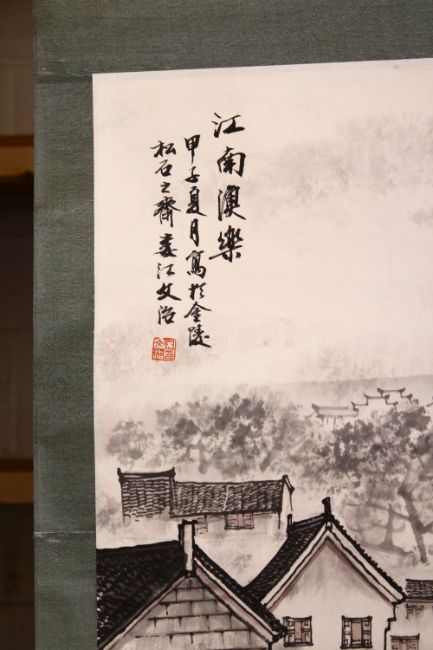 江南漁樂
甲子夏月寫於金陵
松石之齋婁江文治